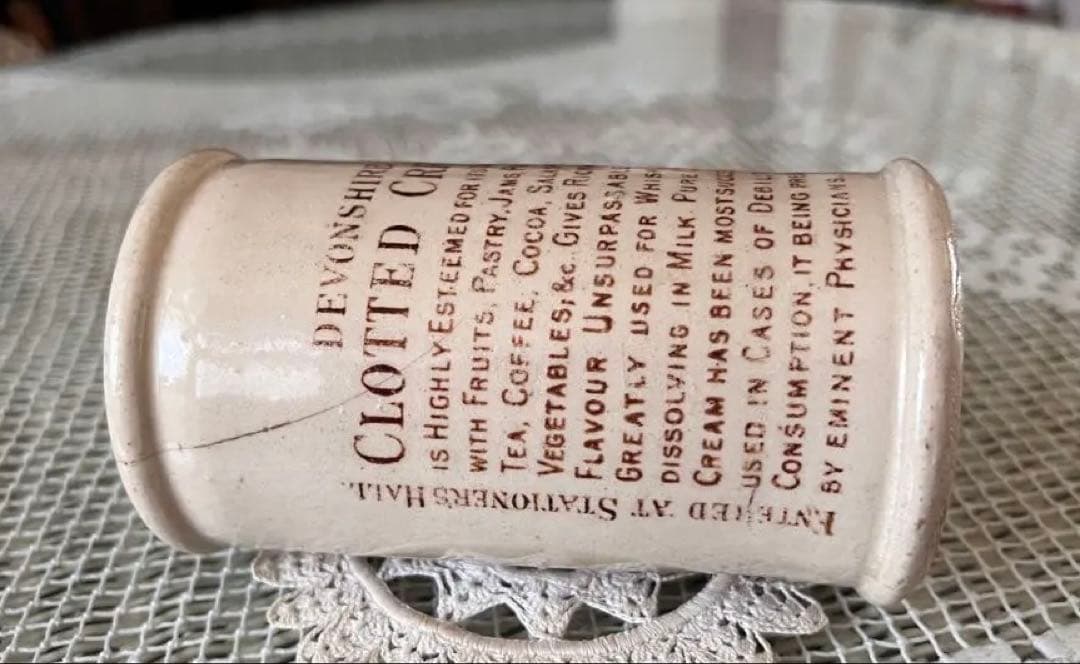 DEVONSHIRE
CLOTTED
IS HIGHLY ESTEEMED FOR
WITH FRUITS, PASTRY, JAMS
TEA, COFFEE, COCOA,
VEGETABLES, &c. GIVES
FLAVOUR UNSURPASSABL
GREATLY USED FOR
DISSOLVING IN MILK PURE
CREAM HAS BEEN MOST
USED IN CASES OF
CONSUMPTION, IT BEING
BY EMINENT PHYSICIANS.
ENTERED AT STATIONERS HALL.